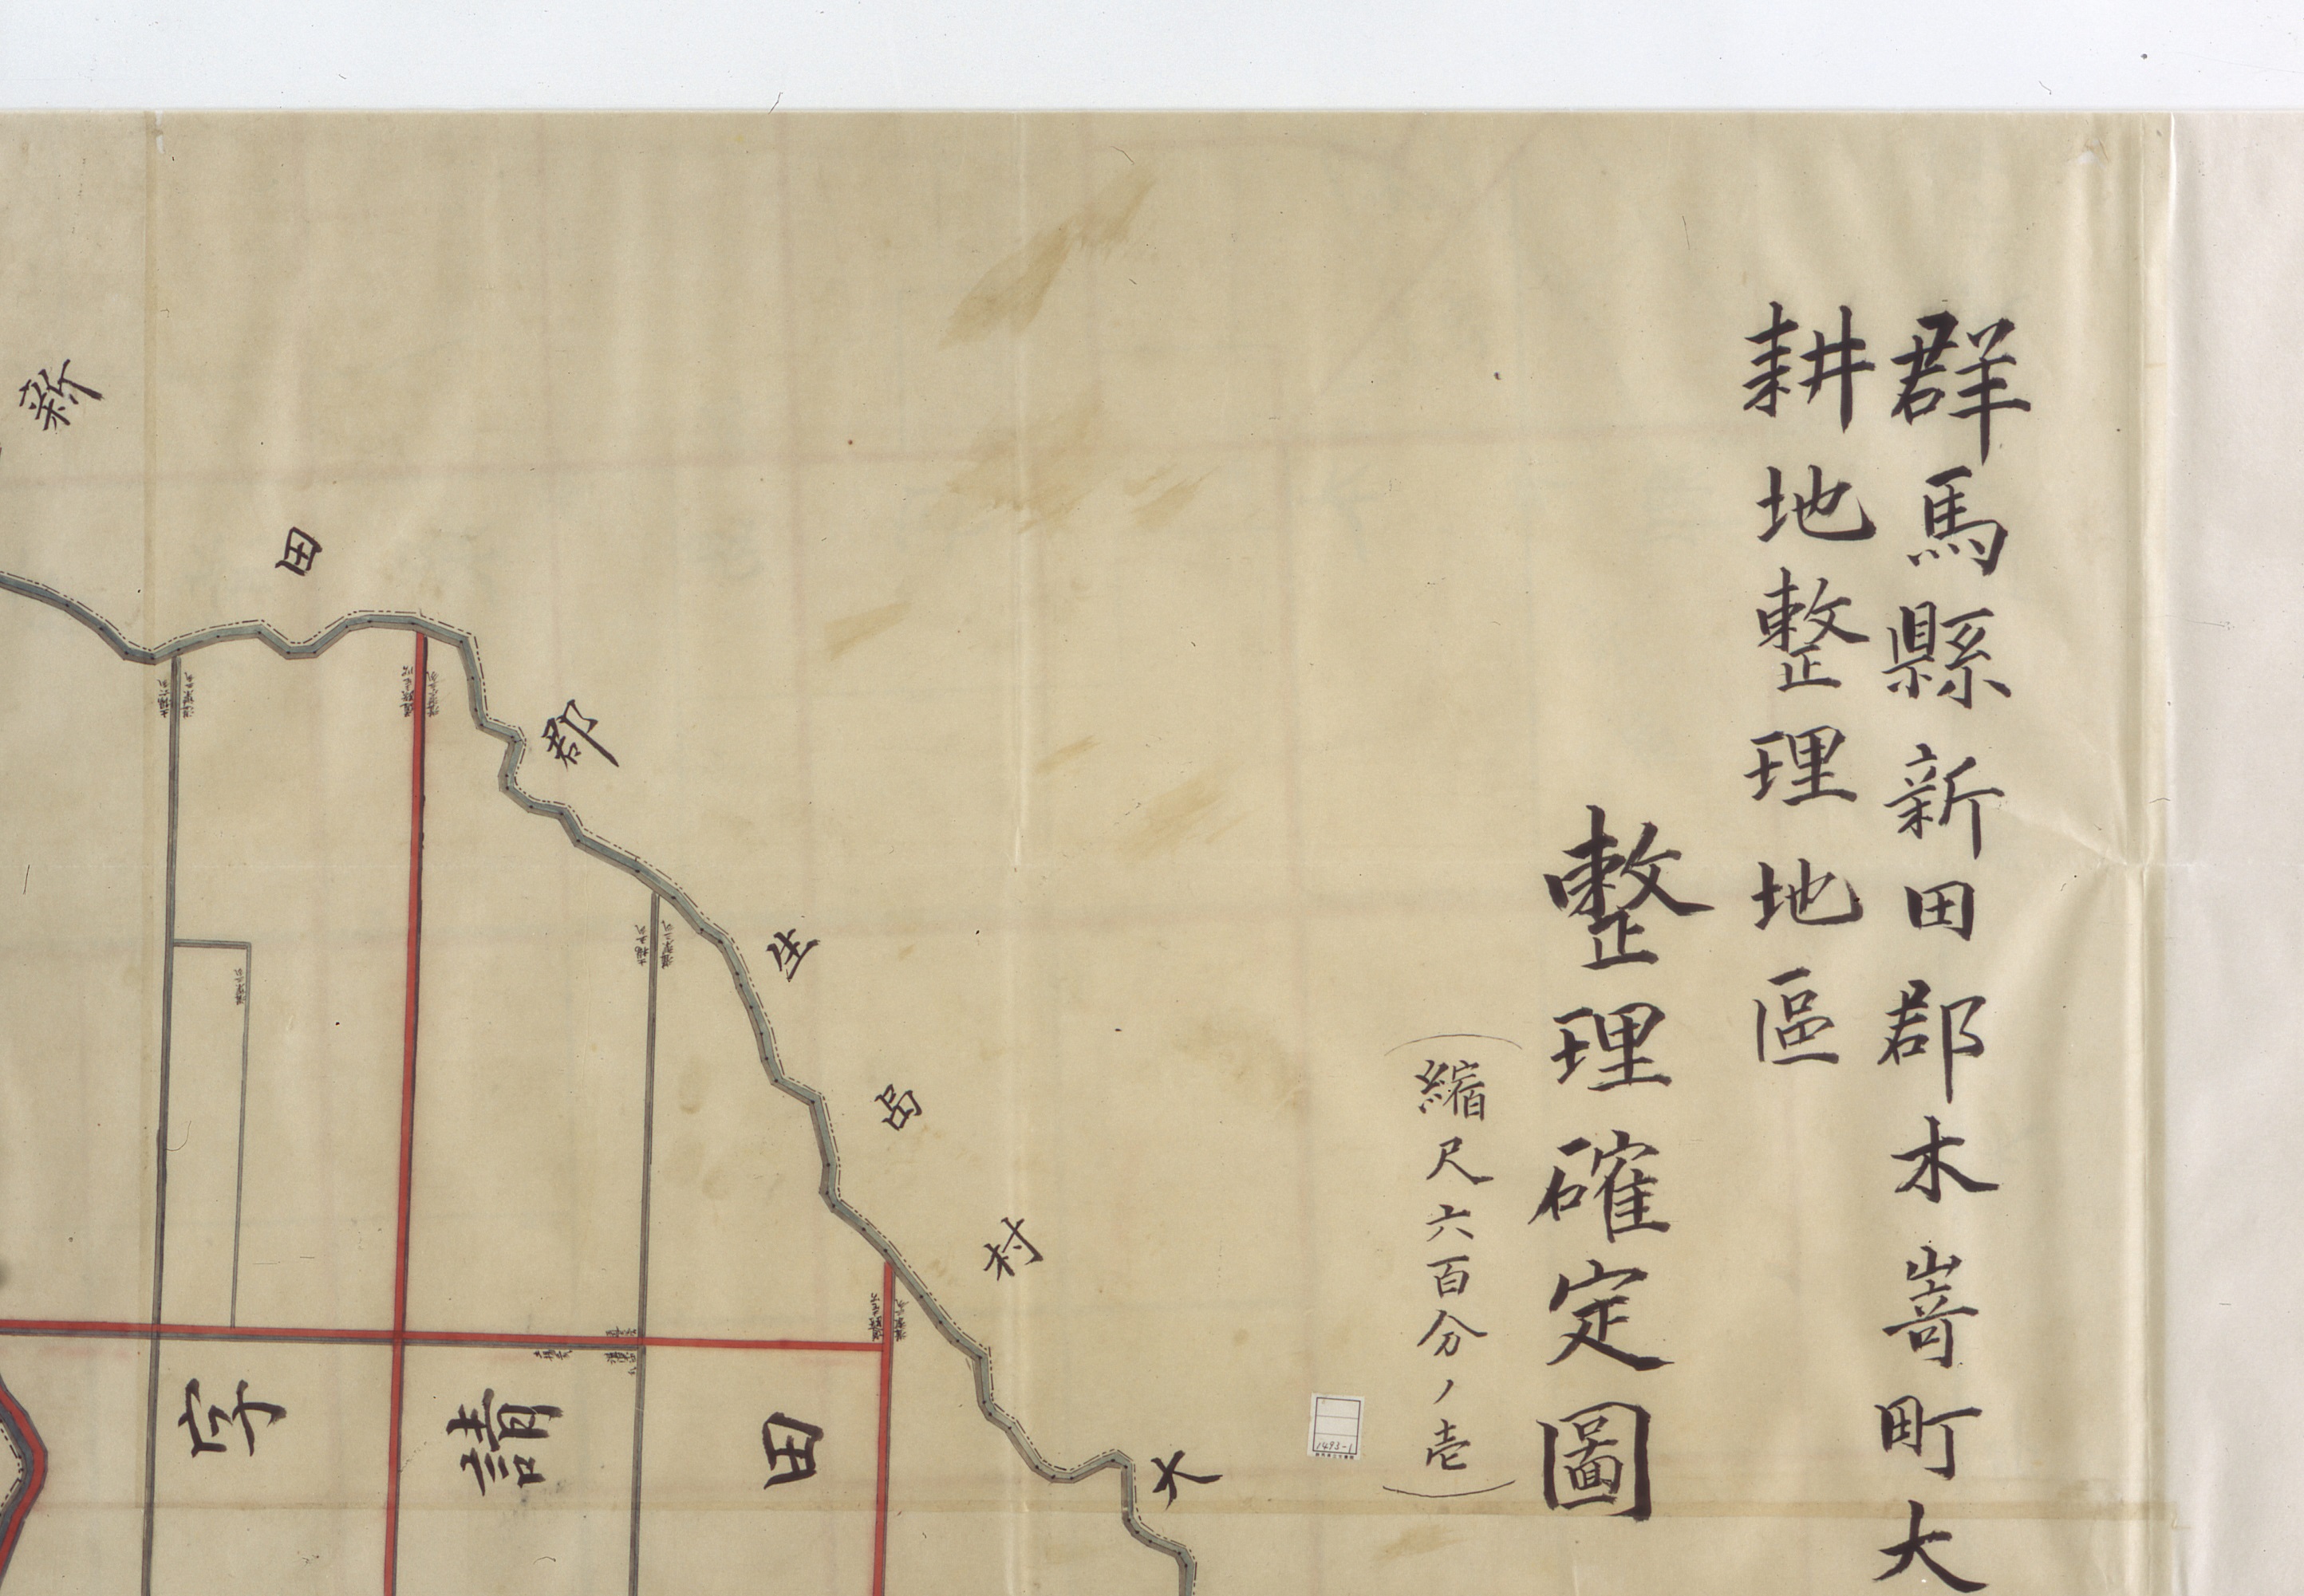 群馬縣新田郡木嵜町大
耕地整理地區
整理確定圖
(縮尺六百分ノ壱)
新田郡生品村大
字請田
1493-1